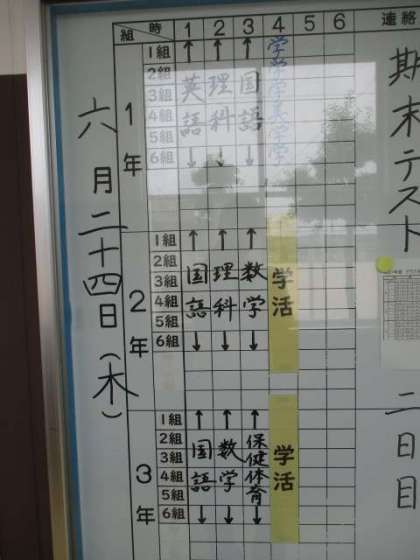 六月二十四日(木)
組 時 1 2 3 4 5 6 連絡
1年
1組 2組 3組 4組 5組 6組
英語 理科 国語
2年
1組 2組 3組 4組 5組 6組
国語 理科 数学 学活
3年
1組 2組 3組 4組 5組 6組
国語 数学 保健体育 学活
期末テスト 二日目